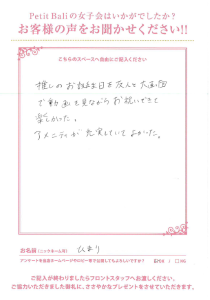 Petit Baliの女子会はいかがでしたか?
お客様の声をお聞かせください!!
こちらのスペースへ自由にご記入ください
推しのお誕生日を友人と大画面
で動画を見ながらお祝いできて
楽しかった。
アメニティが充実していてよかった。
お名前(ニックネーム可) ひまり
アンケートを当店ホームページやロビー等で公開してもよろしいですか?
ご記入が終わりましたらフロントスタッフへお渡しください。
ご協力いただきました御礼に、ささやかなプレゼントをさせていただきます。